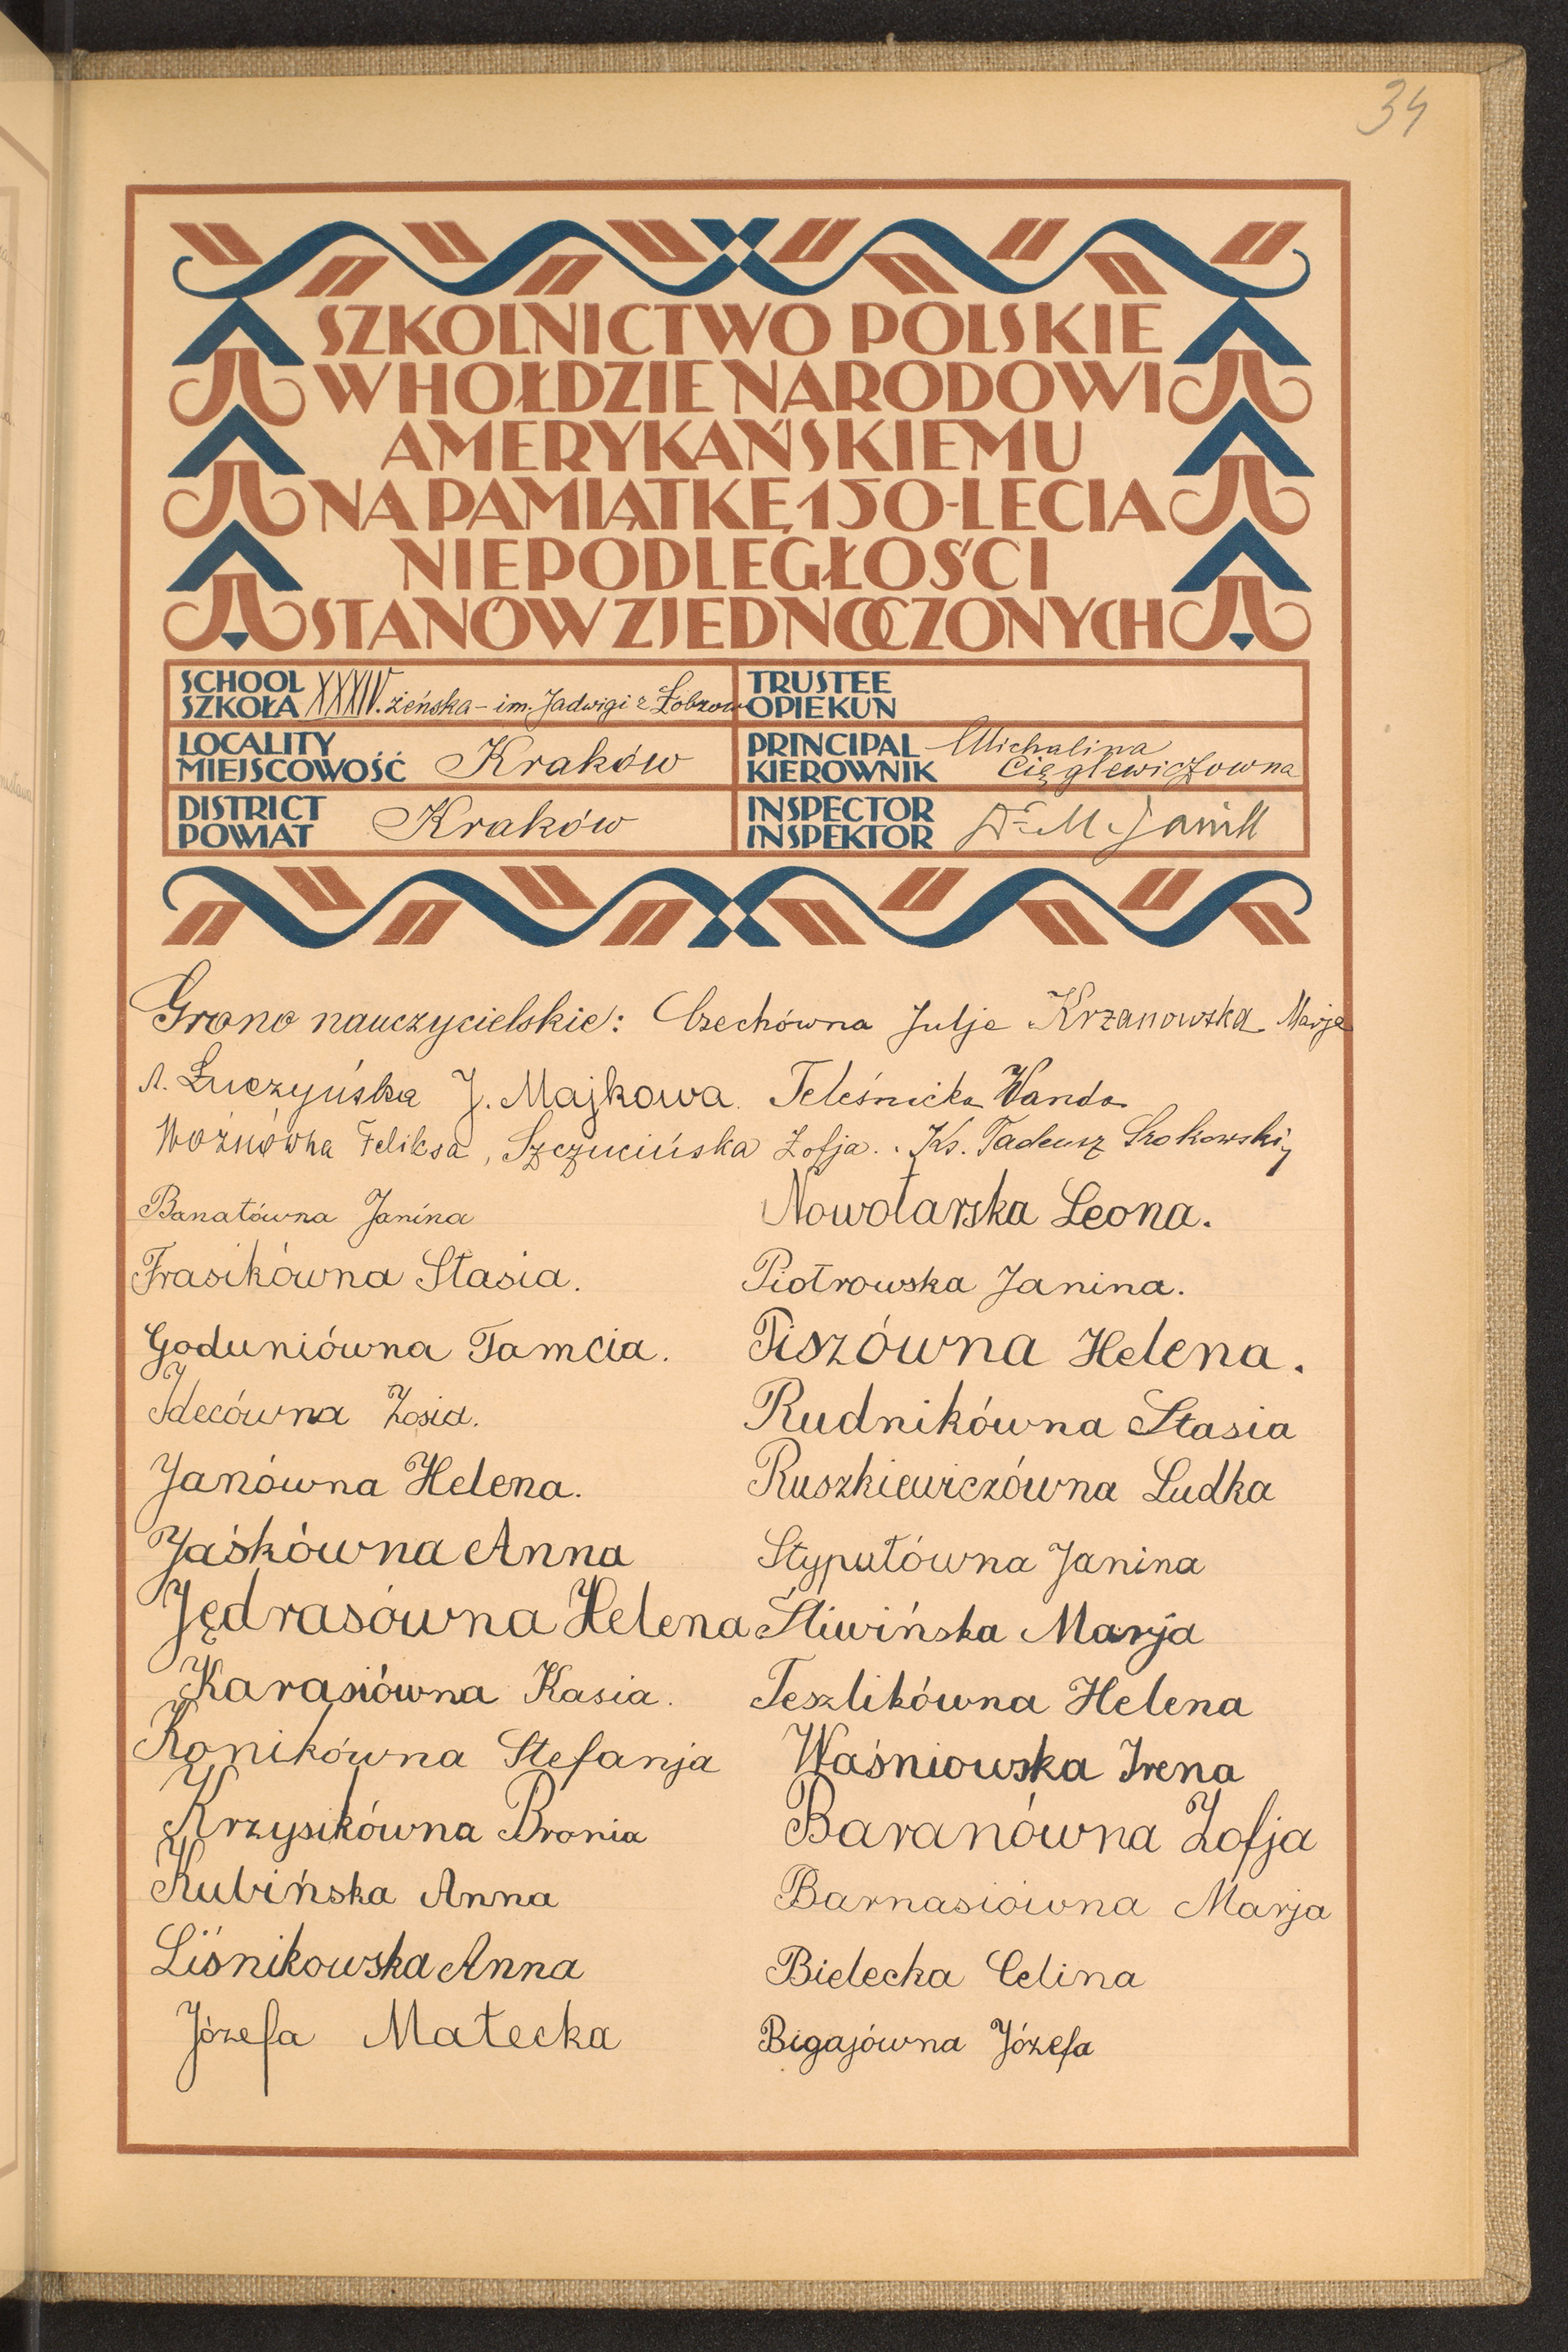 34
SZKOLNICTWO POLSKIE
W HOŁDZIE NARODOWI
AMERYKAŃSKIEMU
NA PAMIĄTKĘ 150-LECIA
NIEPODLEGŁOŚCI
STANÓW ZJEDNOCZONYCH
SCHOOL
SZKOŁA XXXIV. żeńska - im. Jadwigi z Łobzowa
TRUSTEE
OPIEKUN
LOCALITY
MIEJSCOWOŚĆ Kraków
PRINCIPAL Michalina
KIEROWNIK Cięglewiczówna
DISTRICT
POWIAT Kraków
INSPECTOR
INSPEKTOR Dr M. Janik
Grono nauczycielskie: Czechówna Julja Krzanowska Marja
A. Łuczyńska J. Majkowa. Teleśnicka Wanda
Woźnówna Feliksa, Szczucińska Zofja. Ks. Tadeusz
Banatówna Janina
Frasikówna Stasia.
Goduniówna Tamcia.
Idecówna Zosia.
Janówna Helena.
Jaśkówna Anna
Jędrasówna Helena
Karasiówna Kasia.
Konikówna Stefanja
Krzysikówna Bronia
Kubińska Anna
Liśnikowska Anna
Józefa Małecka
Nowotarska Leona.
Piotrowska Janina.
Piszówna Helena.
Rudnikówna Stasia
Ruszkiewiczówna Ludka
Stypułówna Janina
Śliwińska Marja
Teszlikówna Helena
Waśniowska Irena
Baranówna Zofja
Barnasiówna Marja
Bielecka Celina
Bigajówna Józefa